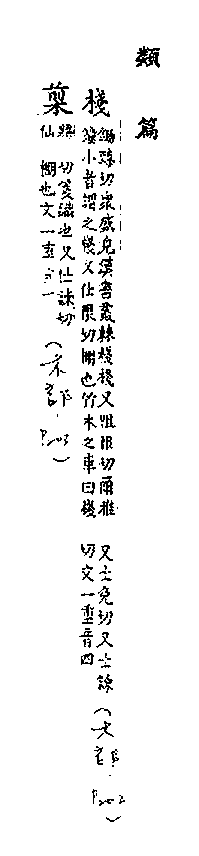 類篇
棧
鋤臻切眾盛皃漢書叢棘棧棧又阻限切爾雅
鐘小者謂之棧又仕限切棚也竹木之車曰棧
又士免切又士諫
切文一重音四
(木部 P202)
切箋識也又仕諫切
仙 棚也文一重音一
(木部 P203)